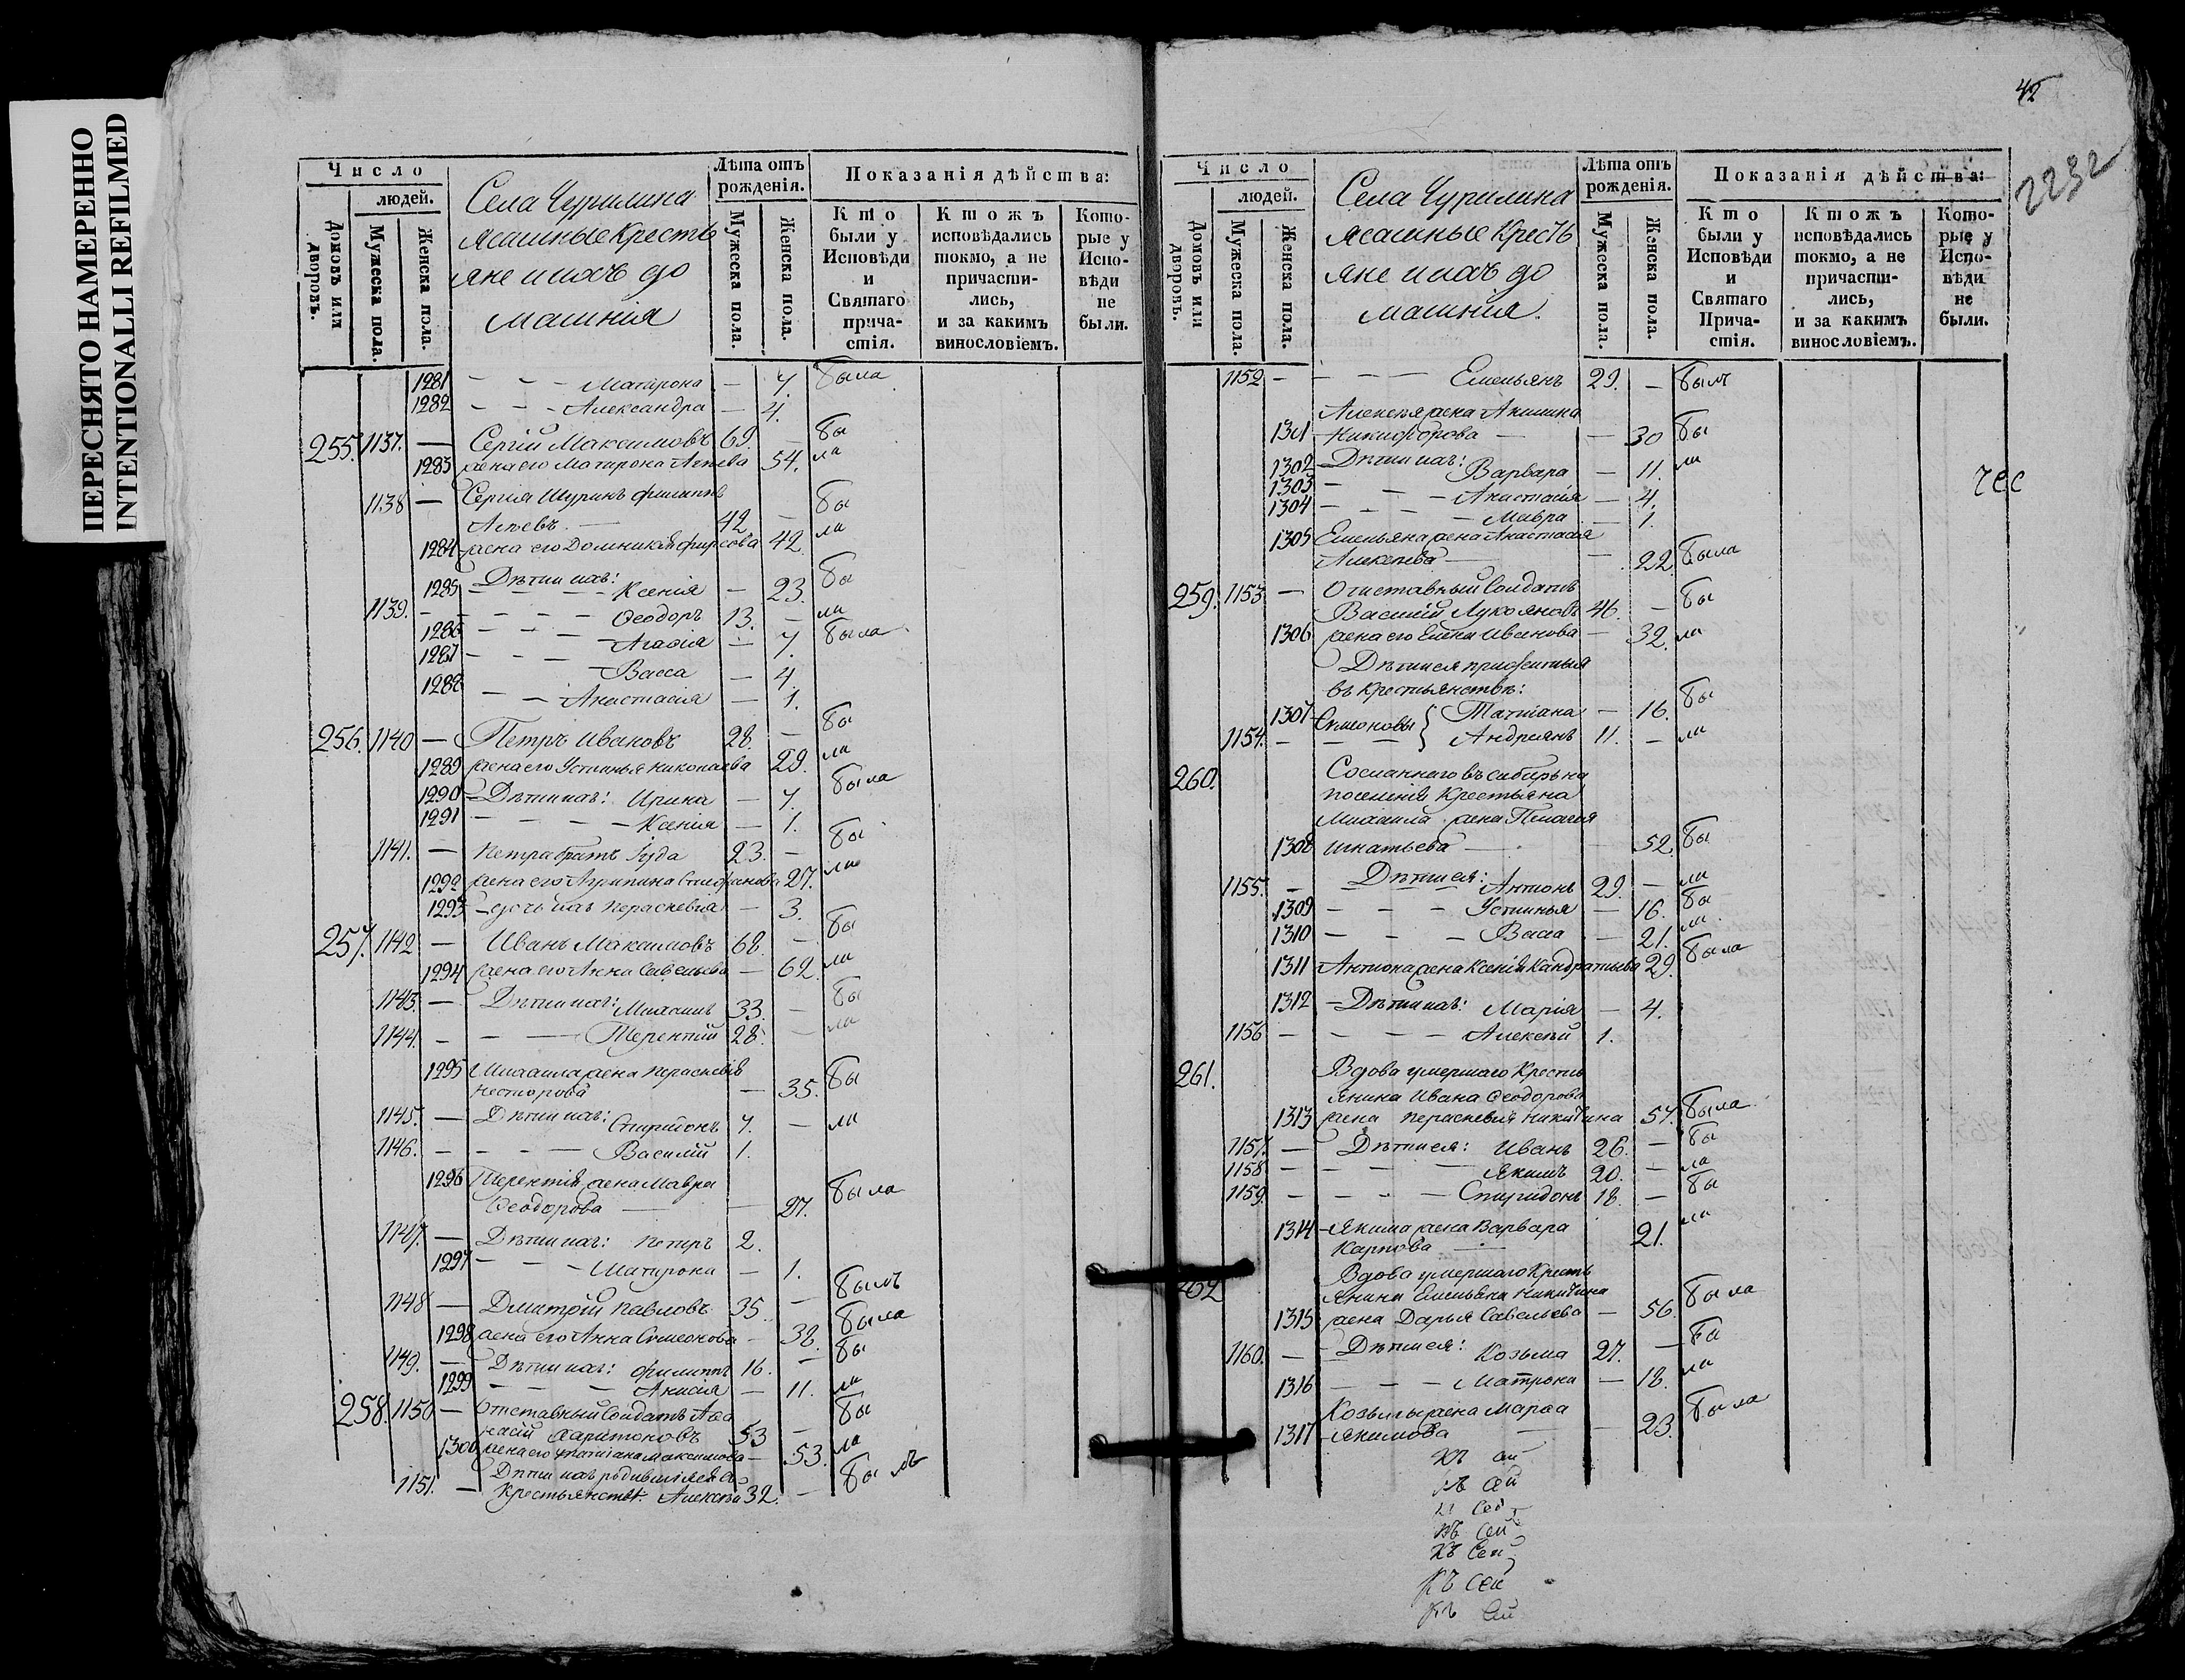 ПЕРЕСНЯТО НАМЕРЕННО
INTENTIONALLI REFILMED
Число
людей.
Домовъ или дворовъ.
Мужеска пола.
Женска пола.
Села Чурилина
Ясашные Кресть
яне и ихъ до
машнія
Лѣта отъ рожденія.
Мужеска пола.
Женска пола.
Показанія дѣйства:
Кто были у Исповѣди и Святаго прича-стія.
Ктожъ исповѣдались токмо, а не причасти-лись, и за какимъ винословіемъ.
Кото-рые у Испо-вѣди не были.
1281 — — — Матрона — 7. была
1282 — — — Александра — 4.
255. 1137. — Сергій Максимовъ 69. — бы
1283 жена его Матрона Агѣева 54. ла
1138 — Сергія Шуринъ Филипъ
Агѣевъ. — 42 — бы
1284 жена его Домникія Фирсова 42. ла
1285 Дѣти ихъ: Ксенія — 23. бы
1139. — — — — Ѳеодоръ 13. — ли
1286 — — — Агафія — 7. была
1287 — — — Васса — 4.
1288 — — Анастасія — 1.
256. 1140 — Петръ Ивановъ 28. — бы
1289 жена его Устинья Николаева 29. ли
1290 Дѣти ихъ: Ирина — 7. была
1291 — — — Ксенія — 1.
1141. — Петра братъ Іуда 23. — бы
1292 жена его Агрипина Стефанова 27. ли
1293 дочь ихъ Параскевія — 3.
257. 1142 — Иванъ Максимовъ 68. — бы
1294 жена его Анна Савельева — 62. ли
1143. — Дѣти ихъ: Михаилъ 33. — бы
1144. — — Терентій 28. — ли
1295 Михаила жена Параскевія
Несторова — 35. бы
1145. — Дѣти ихъ: Спиридонъ 7. — ли
1146. — — — Василій 1.
1296 Терентія жена Мавра
Ѳеодорова — — 27. была
1147. — Дѣти ихъ: Петръ 2.
1297 — — — Матрона — 1.
1148 — Дмитрій Павловъ 35. — былъ
1298 жена его Анна Симеонова — 38. была
1149. — Дѣти ихъ: Филиппъ 16. — бы
1299 — — — Анисія — 11. ли
258. 1150 — Отставный Солдатъ Афа
насій Харитоновъ 53 — бы
1300 жена его Татіана Максимова — 53. ла
Дѣти ихъ родившіяся въ
1151. — Крестьянствѣ. Алексѣй 32. — былъ
42
2232
Число
людей.
Домовъ или дворовъ.
Мужеска пола.
Женска пола.
Села Чурилина
Ясашные Кресть
яне и ихъ до
машнія.
Лѣта отъ рожденія.
Мужеска пола.
Женска пола.
Показанія дѣйства:
Кто были у Исповѣди и Святаго Прича-стія.
Ктожъ исповѣдались токмо, а не причасти-лись, и за какимъ винословіемъ.
Кото-рые у Испо-вѣди не были.
1152 — — — — Емельянъ 29. — былъ
Алексѣя жена Акилина
1301 Никифорова — — 30 бы
1302 Дѣти ихъ: Варвара — 11. ли
1303 — — — Анастасія — 4.
1304 — — — Мавра — 1.
1305 Емельяна жена Анастасія
Алексѣева — — 22. была
259. 1153 — Отставный Солдатъ
Василій Лукояновъ 46. — бы
1306 жена его Елена Иванова — 32. ли
Дѣти ея прижитыя
въ крестьянствѣ:
1307 Симоновы } Татіана — 16. бы
1154. — — — Андреянъ 11. — ли
260. Сосланнаго въ сибирь на
поселеніе Крестьяна
Михаила жена Пелагея
1308 Игнатьева — 52. бы
1155. — Дѣти ея: Антонъ 29. — ли
1309 — — — Устинья — 16. бы
1310 — — — Васса — 21. ли
1311 Антона жена Ксенія Кандратьева 29. была
1312 Дѣти ихъ: Марія — 4.
1156 — — — — Алексѣй 1.
261. Вдова умершаго Кресть
янина Ивана Ѳеодорова
1313 жена Параскевія Никитина 57. была
1157. — Дѣти ея: Иванъ 26. — бы
1158 — — — Якимъ 20. — ла
1159. — — — Спиридонъ 18. — бы
1314 Якима жена Варвара
Карпова — 21. ли
262 Вдова умершаго Кресть
янина Емельяна Никитина
1315 жена Дарья Савельева — 56. была
1160. — Дѣти ея: Козьма 27. — бы
1316 — — — Матрона — 18. ли
Козьмы жена Марфа
1317 Якимова — — 23. была